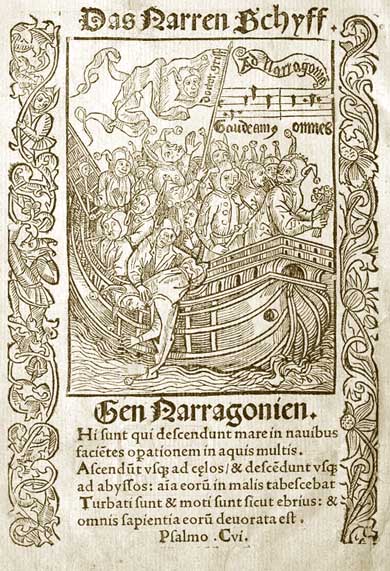 Das Narren Schyff.
Ad Narragoniā
Doctor griff
Gaudeamꝰ omnes
Gen Narragonien.
Hi sunt qui descendunt mare in nauibus
faciētes opationem in aquis multis.
Ascendūt vsqꝫ ad cęlos/ & descēdunt vsqꝫ
ad abyssos: aīa eorū in malis tabescebat
Turbati sunt & moti sunt sicut ebrius: &
omnis sapientia eorū deuorata est.
Psalmo .Cvi.